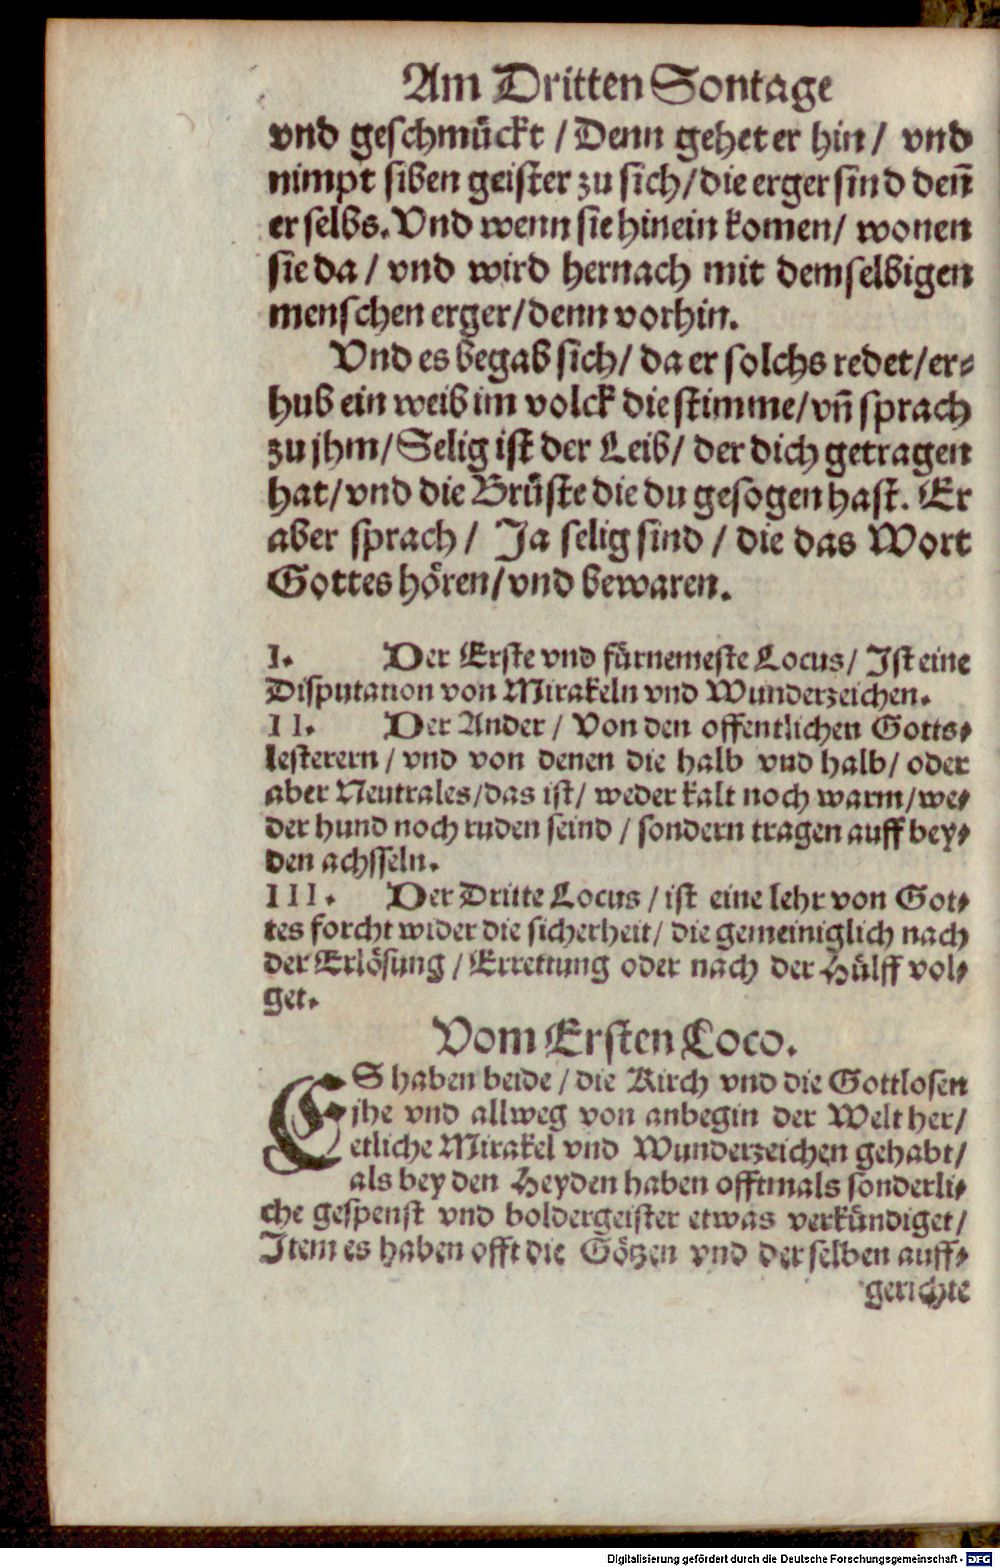 Am Dritten Sontage
vnd geschmückt / Denn gehet er hin / vnd
nimpt siben geister zu sich / die erger sind deñ
er selbs. Vnd wenn sie hinein komen / wonen
sie da / vnd wird hernach mit demselbigen
menschen erger / denn vorhin.
Vnd es begab sich / da er solchs redet / er⸗
hub ein weib im volck die stimme / vñ sprach
zu jhm / Selig ist der Leib / der dich getragen
hat / vnd die Brüste die du gesogen hast. Er
aber sprach / Ja selig sind / die das Wort
Gottes hören / vnd bewaren.
I. Der Erste vnd fürnemeste Locus / Ist eine
Disputation von Mirakeln vnd Wunderzeichen.
II. Der Ander / Von den offentlichen Gotts⸗
lesterern / vnd von denen die halb vnd halb / oder
aber Neutrales / das ist / weder kalt noch warm / we⸗
der hund noch ruden seind / sondern tragen auff bey⸗
den achsseln.
III. Der Dritte Locus / ist eine lehr von Got⸗
tes forcht wider die sicherheit / die gemeiniglich nach
der Erlösung / Errettung oder nach der Hülff vol⸗
get.
Vom Ersten Loco.
ES haben beide / die Kirch vnd die Gottlosen
jhe vnd allweg von anbegin der Welt her /
etliche Mirakel vnd Wunderzeichen gehabt /
als bey den Heyden haben offtmals sonderli⸗
che gespenst vnd boldergeister etwas verkündiget /
Item es haben offt die Götzen vnd derselben auff⸗
gerichte
Digitalisierung gefördert durch die Deutsche Forschungsgemeinschaft - DFG